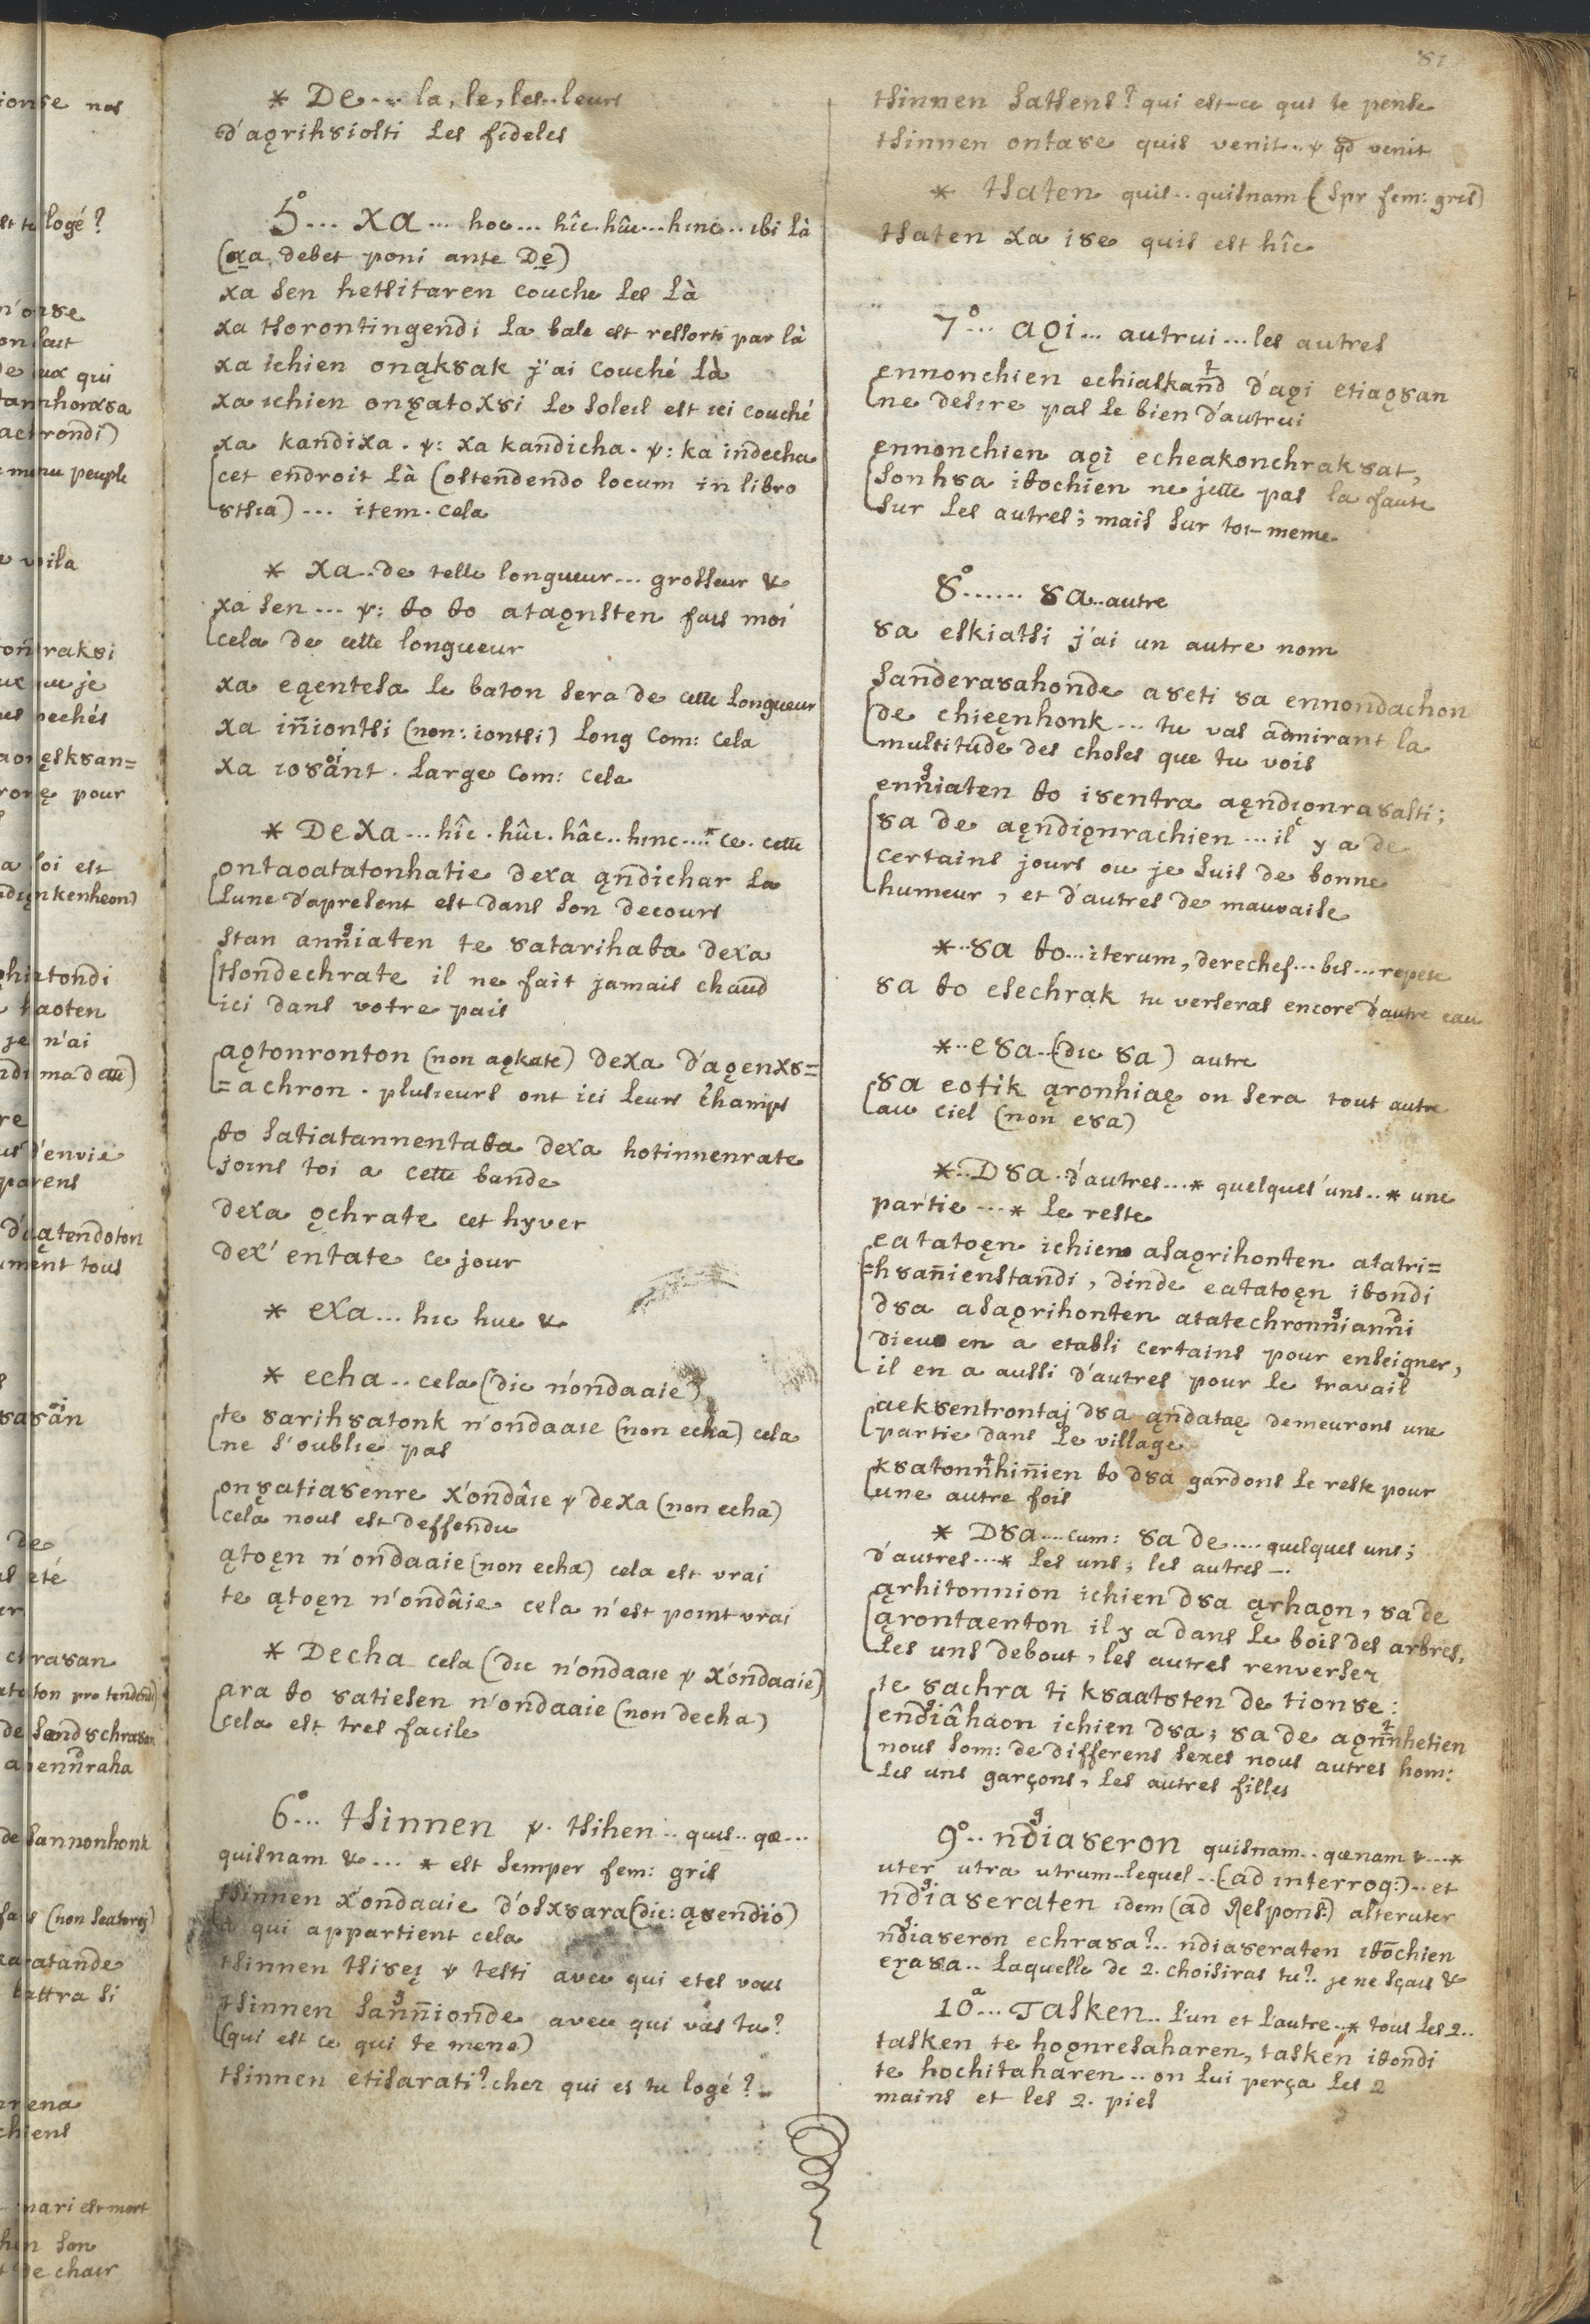 81
* De... la, le, les.. leurs
d'aǫrih8iosti les fideles
5°... xa... hoc... hîc. hûc... hinc.. ibi là
(xa debet poni ante De)
xa sen hetsitaren couche les là
xa tsorontingendi la bale est ressorti par là
xa ichien onąk8ak j'ai couché là
xa ichien onȣatox8i le soleil est ici couché
xa kandixa. ѱ: xa kandicha. ѱ: ka indecha
cet endroit là (ostendendo locum in libro
8tsia)... item. cela
* xa.. de telle longueur... grosseur &
xa sen... ѱ: to to ataǫnsten fais moi
cela de cette longueur
xa eąentesa le baton sera de cette longueur
xa iñiontsi (non: iontsi) long com: cela
xa io8ȧnt. large com: cela
* Dexa... hîc. hûc. hâc.. hinc....* ce. cette
ontaoatatonhatie dexa ąndichar la
lune d'apresent est dans son decours
stan anniaten te 8atarihata dexa
tsondechrate il ne fait jamais chaud
ici dans votre païs
aǫtonronton (non aǫkate) dexa d'aǫenx8=
=achron. plusieurs ont ici leurs champs
to satiatannentata dexa hotinnenrate
joins toi a cette bande
dexa ǫchrate cet hyver
dex' entate ce jour
* exa... hic huc &
* echa.. cela (dic n'ondaaie)
te 8arih8atonk n'ondaaie (non echa) cela
ne s'oublie pas
onȣatia8enre x'ondâie ѱ dexa (non echa)
cela nous est deffendu
ątoęn n'ondaaie (non echa) cela est vrai
te ątoęn n'ondâie cela n'est point vrai
* Decha cela (dic n'ondaaie ѱ x'ondaaie)
ara to 8atiesen n'ondaaie (non decha)
cela est tres facile
6°... tsinnen ѱ. tsihen.. quis.. qæ...
quisnam &... * est semper fem: gris
tsinnen x'ondaaie d'osx8ara (dic: ą8endio)
a qui appartient cela
tsinnen tsi8eį ѱ testi avec qui etes vous
tsinnen sannionde avec qui vas tu?
(qui est ce qui te mene)
tsinnen etisarati? chez qui es tu logé?
tsinnen satsens? qui est-ce qui te pense
tsinnen onta8e quis venit.. ѱ qd venit
* tsaten quis.. quisnam (spr fem: gris)
tsaten xa i8e quis est hîc
7°... aǫi... autrui... les autres
ennonchien echiatkand d'aǫi etiaǫ8an
ne desire pas le bien d'autrui
ennonchien aǫi echeakonchrak8at,
sonh8a itochien ne jette pas la faute
sur les autres; mais sur toi-meme
8°...... 8a.. autre
8a eskiatsi j'ai un autre nom
sandera8ahonde a8eti 8a ennondachon
de chieęnhonk... tu vas admirant la
multitude des choses que tu vois
enniaten to i8entra aęndįonra8asti;
8a de aęndiǫnrachien... il y a de
certains jours ou je suis de bonne
humeur, et d'autres de mauvaise
*.. 8a to... iterum, derechef... bis... repete
8a to esechrak tu verseras encore d'autre eau
*.. e8a.. (dic 8a) autre
8a eotik ąronhiaę on sera tout autre
au ciel (non e8a)
*.. D8a.. d'autres...* quelques'uns..* une
partie...* le reste
eatatoęn ichien asaǫrihonten atatri=
=h8añienstandi, dinde eatatoęn itondi
d8a asaǫrihonten atatechronnianni
dieu en a etabli certains pour enseigner,
il en a aussi d'autres pour le travail
aek8entrontaj d8a ąndataę demeurons une
partie dans le village
k8atonnhiñien to d8a gardons le reste pour
une autre fois
* D8a.... cum: 8a de..... quelques uns;
d'autres...* les uns; les autres —.
ąrhitonnion ichien d8a ąrhaǫn, 8a de
ąrontaenton il y a dans le bois des arbres,
les uns debout, les autres renversez
te 8achra ti k8aatsten de tion8e:
endiâhaon ichien d8a; 8a de aǫnnhetien
nous som: de differens sexes nous autres hom:
les uns garçons, les autres filles
9°.. ndia8eron quisnam.. qænam &...*
uter utra utrum.. lequel.. (ad interrog:).. et
ndia8eraten idem (ad Respons:) alteruter
ndia8eron echra8a?.. ndia8eraten itochien
eŗa8a.. laquelle de 2. choisiras tu? je ne sçais &
10ª... Tasken.. l'un et l'autre..* tous les 2..
tasken te hoǫnresaharen, tasken itondi
te hochitaharen.. on lui perça les 2
mains et les 2. pies